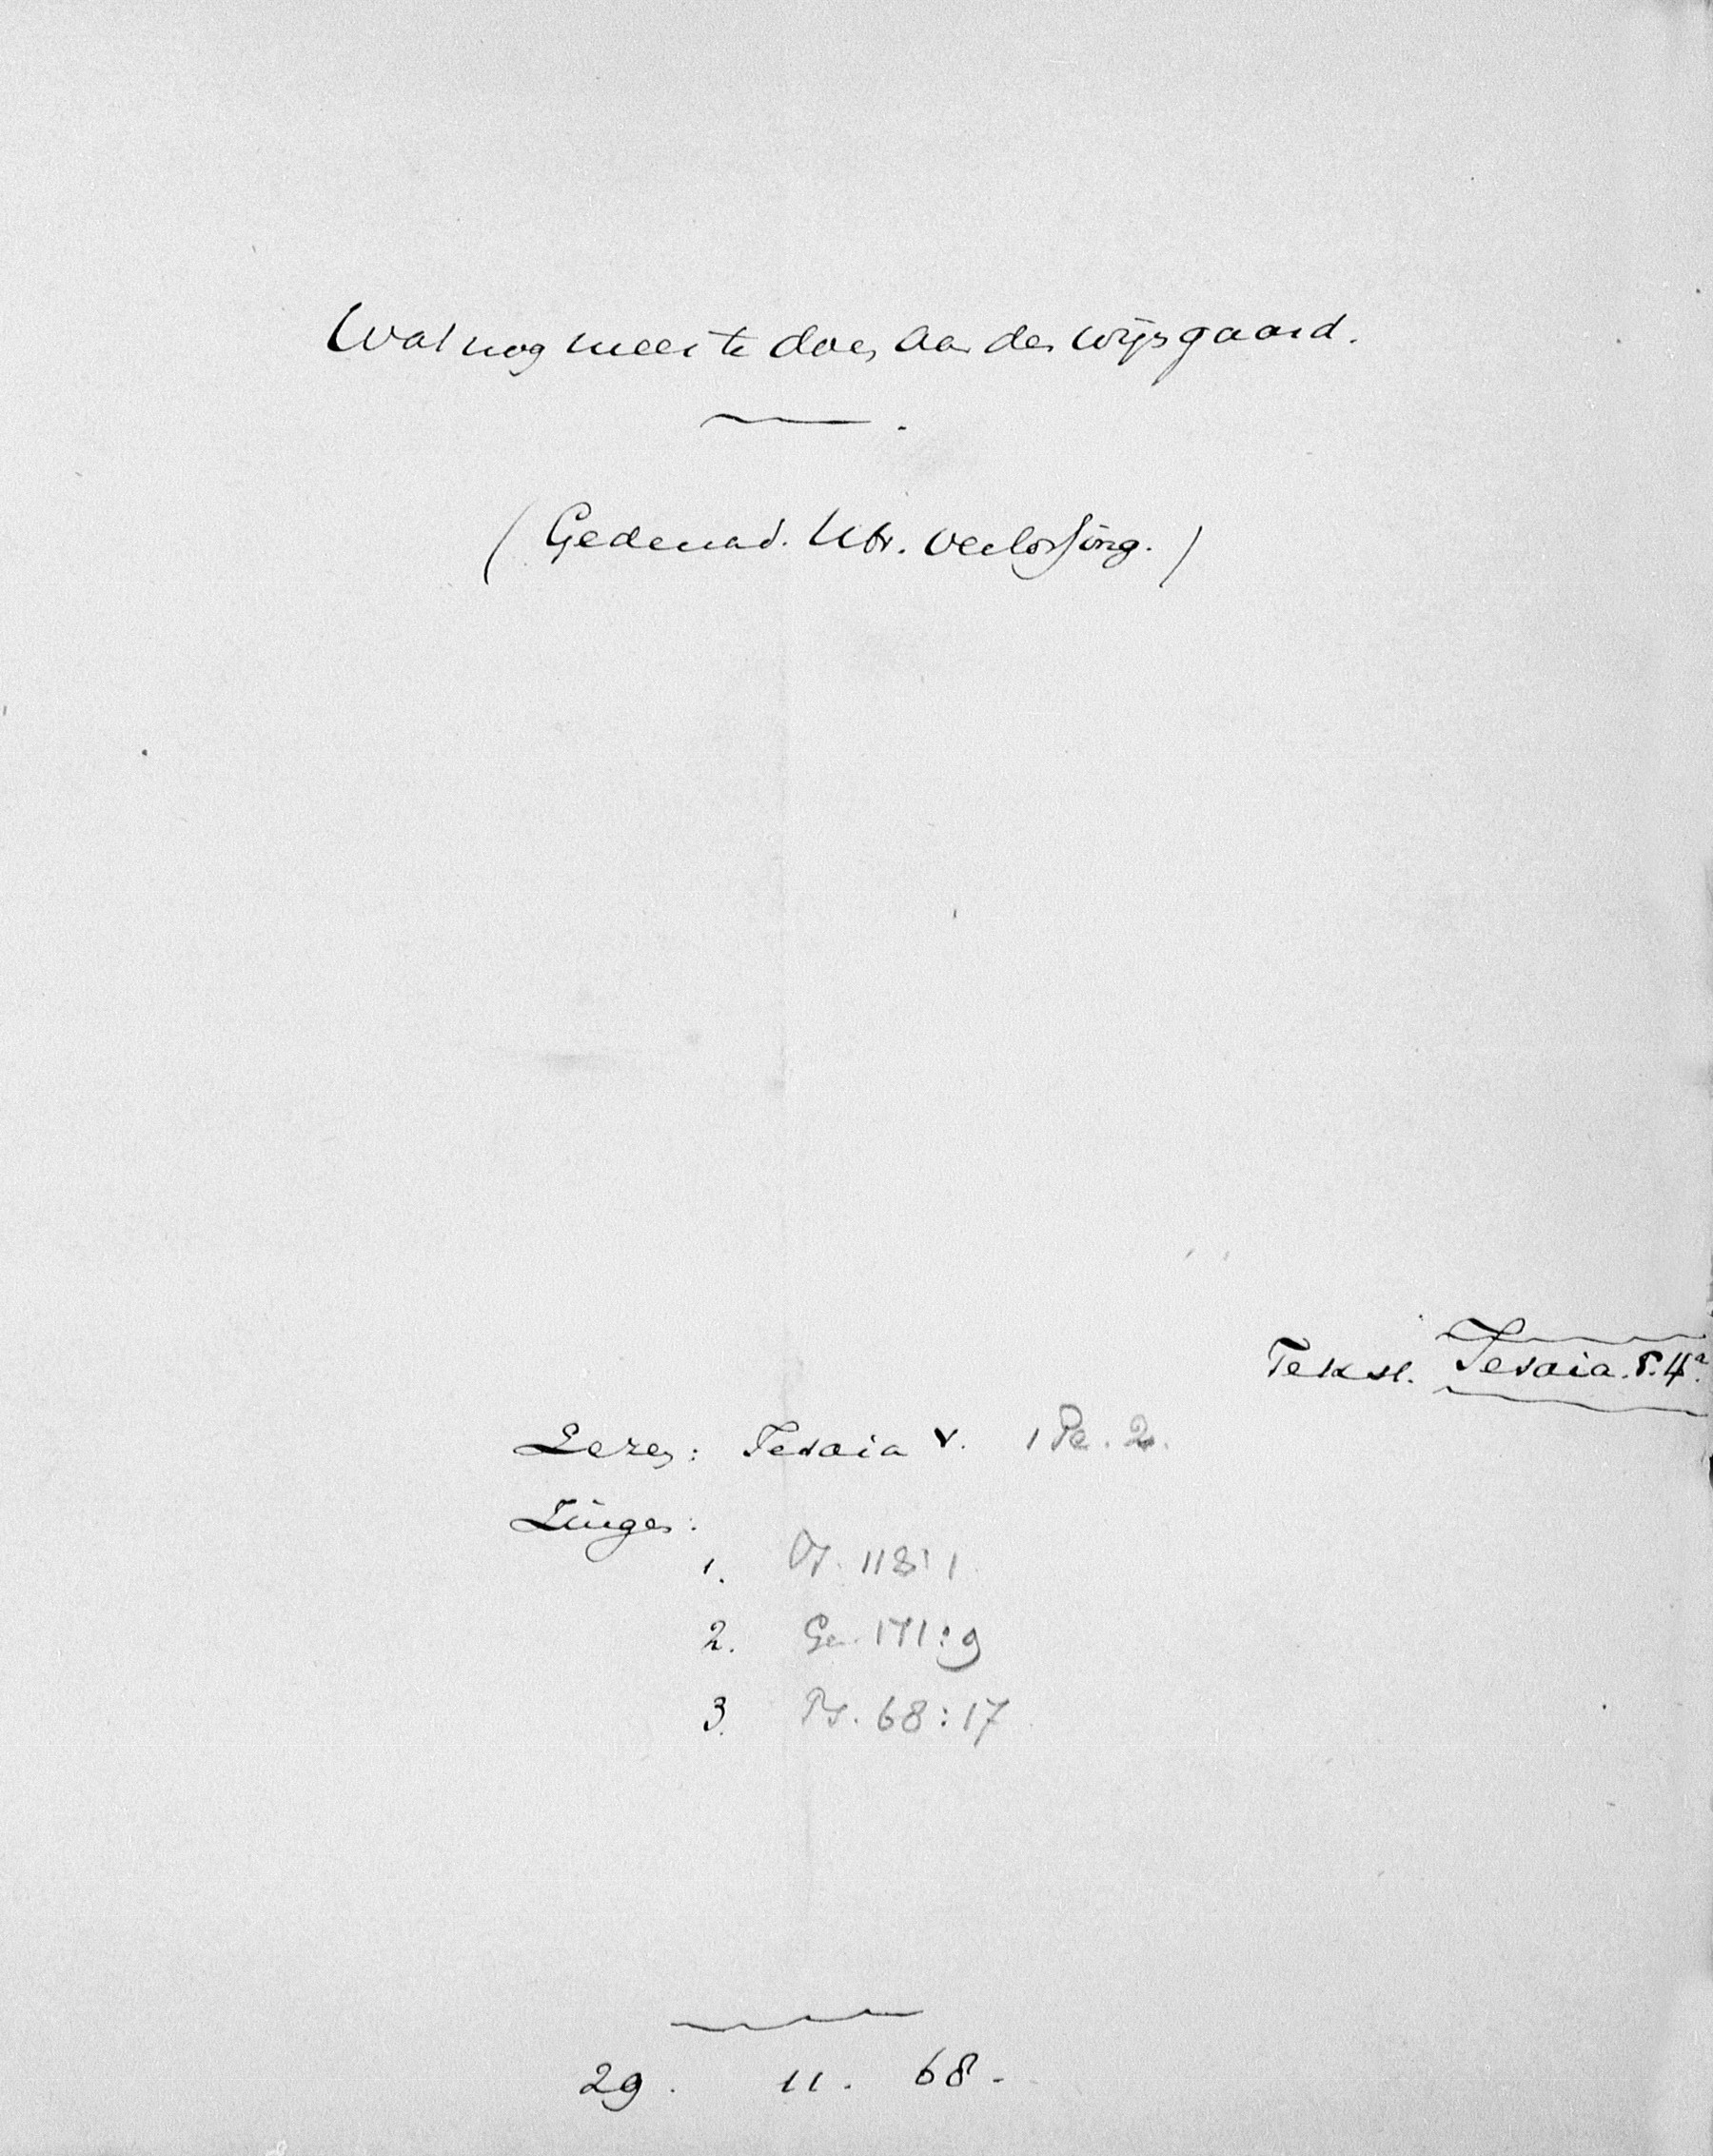 Wat nog meer te doen aan den wijngaard.
(Gedenad. Utr. verlossing.)
Tekst. Jesaia. 5.4a.
Lezen: Jesaia V. 1 Pe. 2.
Zingen:
1. Ps. 118:1
2. Ge. 171:9
3. Ps. 68:17
29. 11. 68.